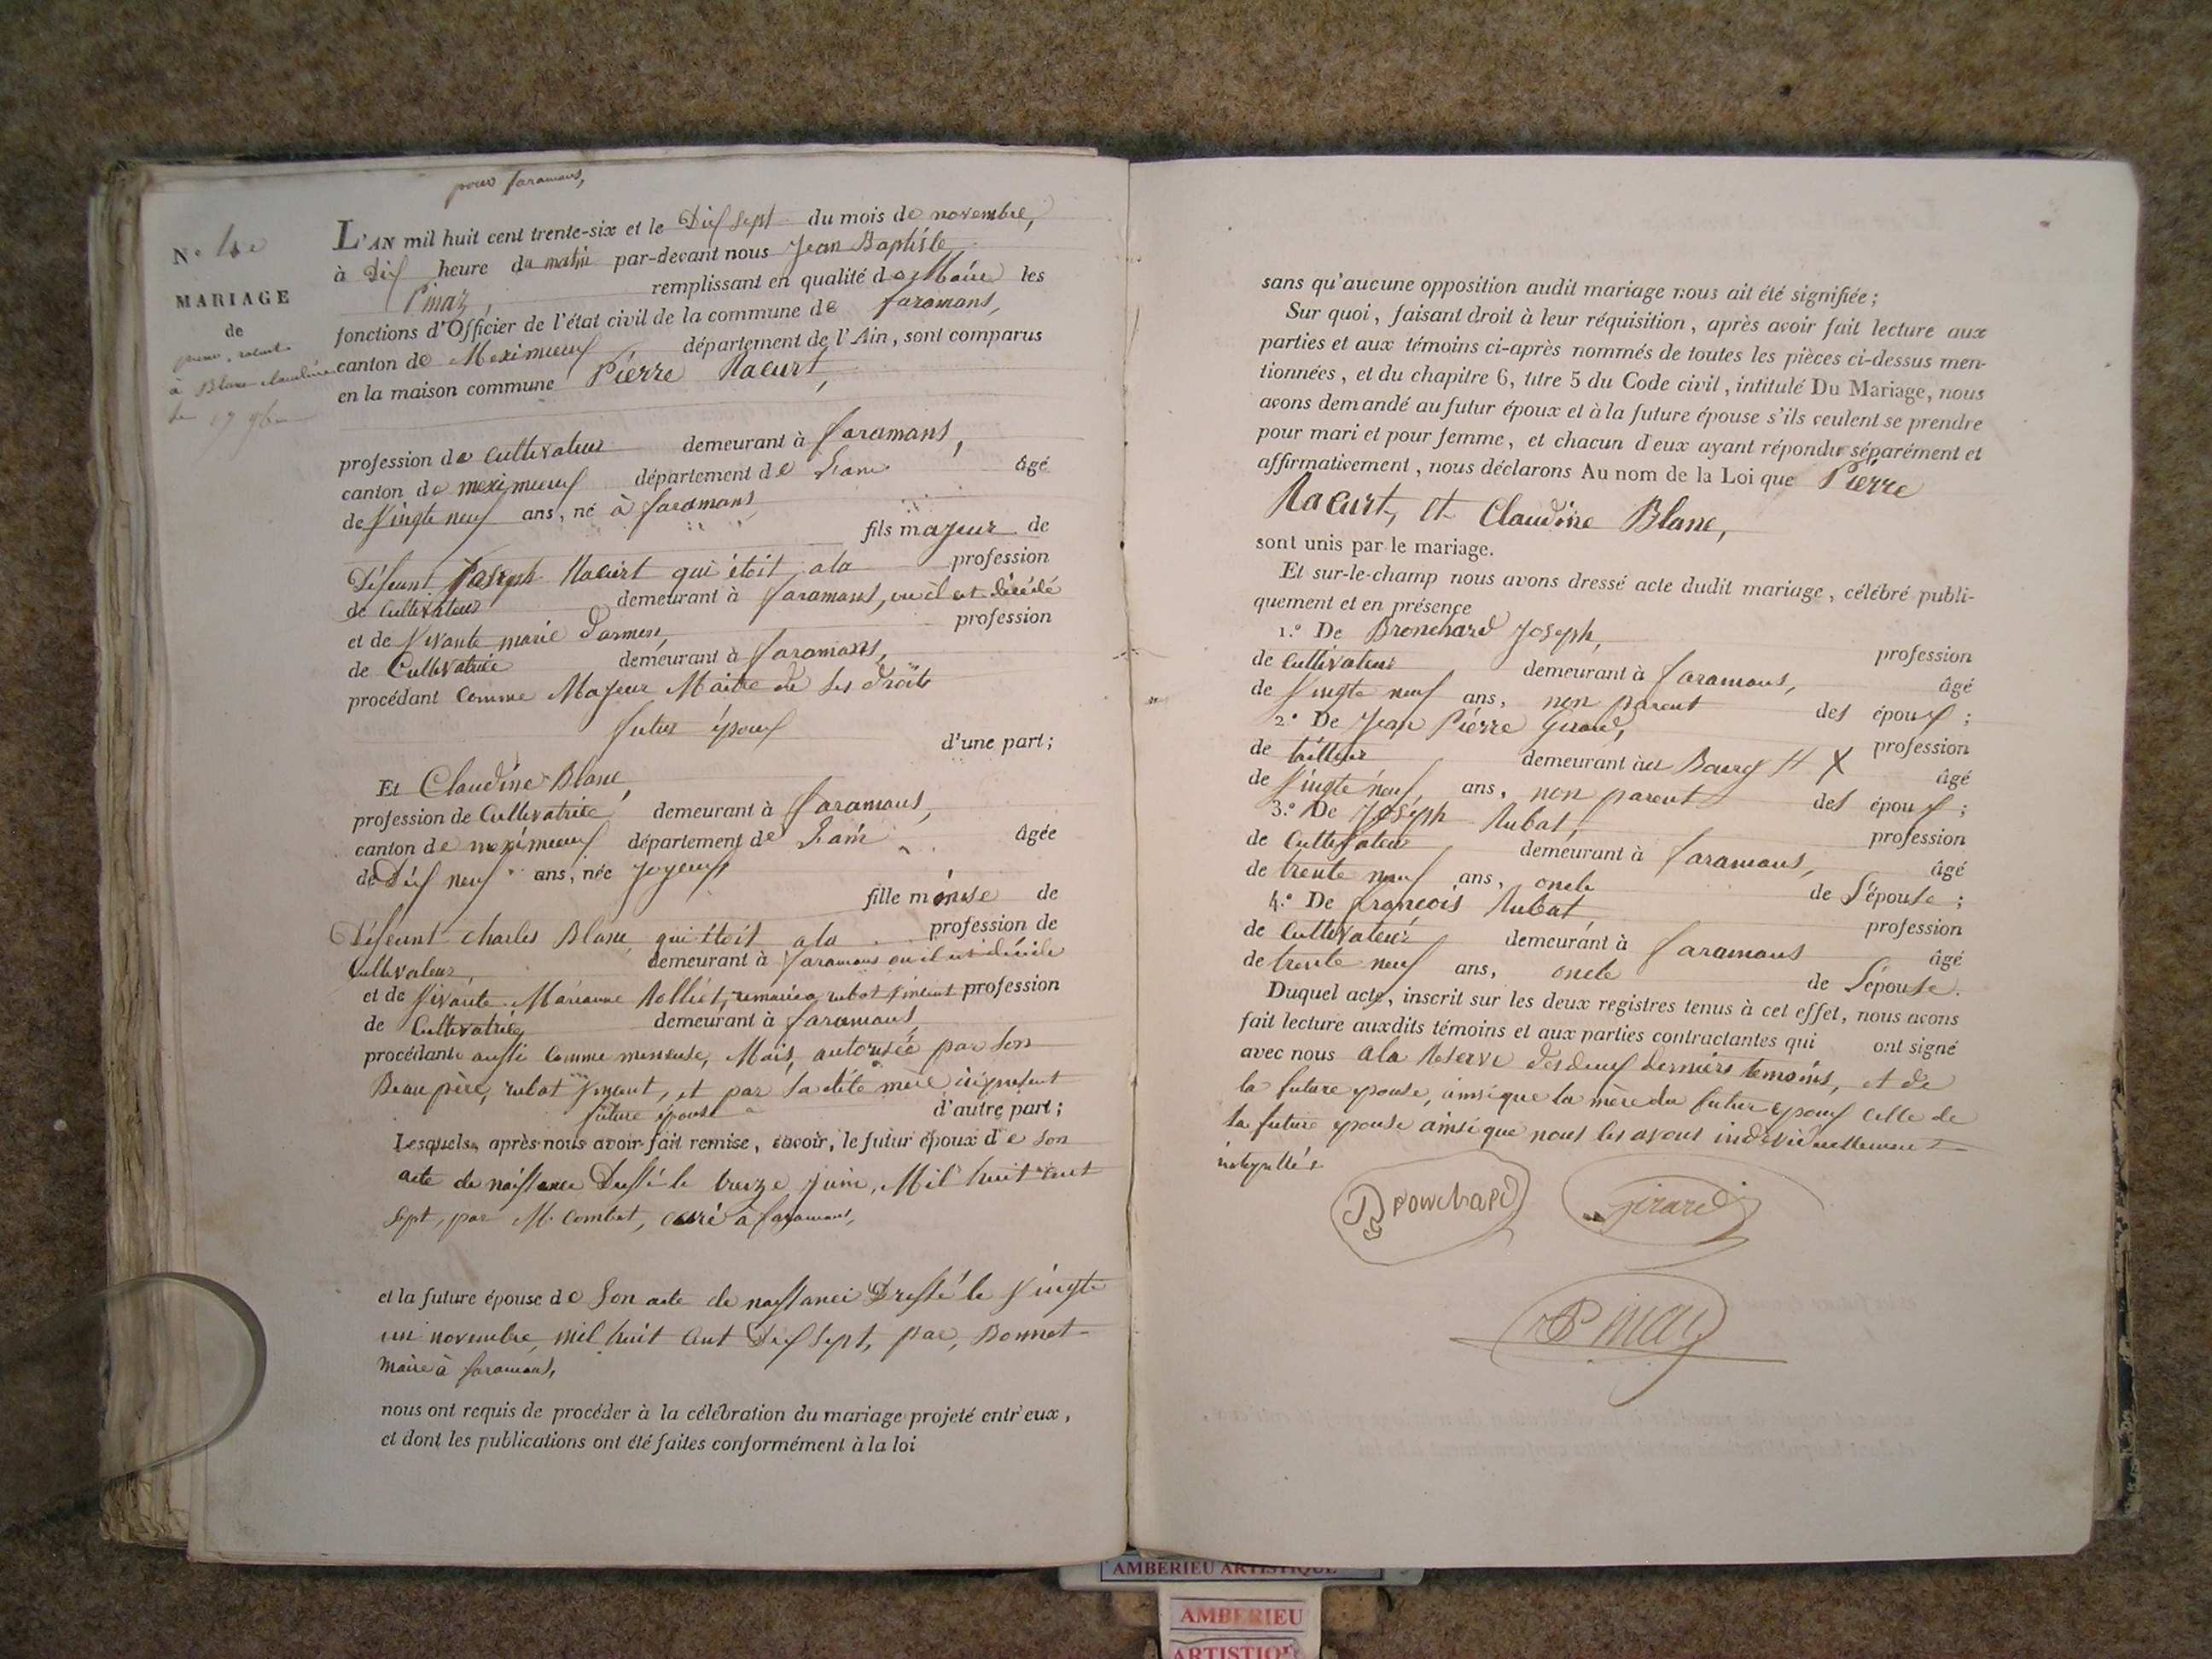 pour faramans,
N.º 4e
MARIAGE
de
à Blanc claudine
le 17 9bre
L'AN mil huit cent trente-six et le Dix sept du mois de novembre,
à Dix heure du matin par-devant nous Jean Baptiste
Pinaz, remplissant en qualité de Maire les
fonctions d'Officier de l'état civil de la commune de faramans,
canton de Meximieux département de l'Ain, sont comparus
en la maison commune Pierre Racurt,
profession de cultivateur demeurant à faramans,
canton de meximieux département de Lain âgé
de Vingte neuf ans, né à faramans
fils majeur de
Défeunt Joseph Racurt qui étoit ala profession
de Cultivateur demeurant à faramans, ou il est décédé
et de Vivante marie Darmen, profession
de Cultivatrice demeurant à faramans,
procédant Comme Majeur Maitre de ses droits
futur époux
d'une part;
Et Claudine Blanc,
profession de Cultivatrice demeurant à faramans,
canton de meximieux département de Lain âgée
de Dix neuf ans, née Joyeux
fille mineuse de
Défeunt charles Blanc qui étoit ala profession de
Cultivateur, demeurant à faramans ou il est décédé
et de Vivante Marianne Rolliet, remariée a rubat Vincent profession
de Cultivatrice demeurant à faramans,
procédante aussi Comme mineuse, Mais, autorisée par son
Beau père, rubat Vincent, et par sa dite mère ici présent
future épouse d'autre part;
Lesquels, après nous avoir fait remise, savoir, le futur époux de son
acte de naissance Dressé le treize juin, Mil huit cent
sept, par M. Combet, curé à faramans,
et la future épouse de Son acte de naissance Dressé le Vingte
un novembre, mil huit Cent Dix sept, par, Bonnet
maire à faramans,
nous ont requis de procéder à la célébration du mariage projeté entr'eux,
et dont les publications ont été faites conformément à la loi
sans qu'aucune opposition audit mariage nous ait été signifiée;
Sur quoi, faisant droit à leur réquisition, après avoir fait lecture aux
parties et aux témoins ci-après nommés de toutes les pièces ci-dessus men-
tionnées, et du chapitre 6, titre 5 du Code civil, intitulé Du Mariage, nous
avons demandé au futur époux et à la future épouse s'ils veulent se prendre
pour mari et pour femme, et chacun d'eux ayant répondu séparément et
affirmativement, nous déclarons Au nom de la Loi que Pierre
Racurt, et Claudine Blanc,
sont unis par le mariage.
Et sur-le-champ nous avons dressé acte dudit mariage, célébré publi-
quement et en présence
1.º De Bronchard Joseph, profession
de Cultivateur demeurant à faramans, âgé
de Vingte neuf ans, non parent des époux;
2.º De Jean Pierre Girard, profession
de tailleur demeurant au Bourg St X âgé
de Vingte neuf, ans, non parent des époux;
3.º De Joseph Rubat, profession
de Cultivateur demeurant à faramans, âgé
de trente neuf ans, oncle de L'épouse;
4.º De françois Rubat, profession
de Cultivateur demeurant à faramans âgé
de trente neuf ans, oncle de L'épouse.
Duquel acte, inscrit sur les deux registres tenus à cet effet, nous avons
fait lecture auxdits témoins et aux parties contractantes qui ont signé
avec nous ala Reserve des deux derniers temoins, et de
la future epouse, ainsi que la mère du futur epoux Celle de
la future epouse ainsi que nous les avons individuellement
interpellés
Bronchard
Girard
Pinaz
AMBERIEU ARTISTIQUE
AMBERIEU
ARTISTIQUE